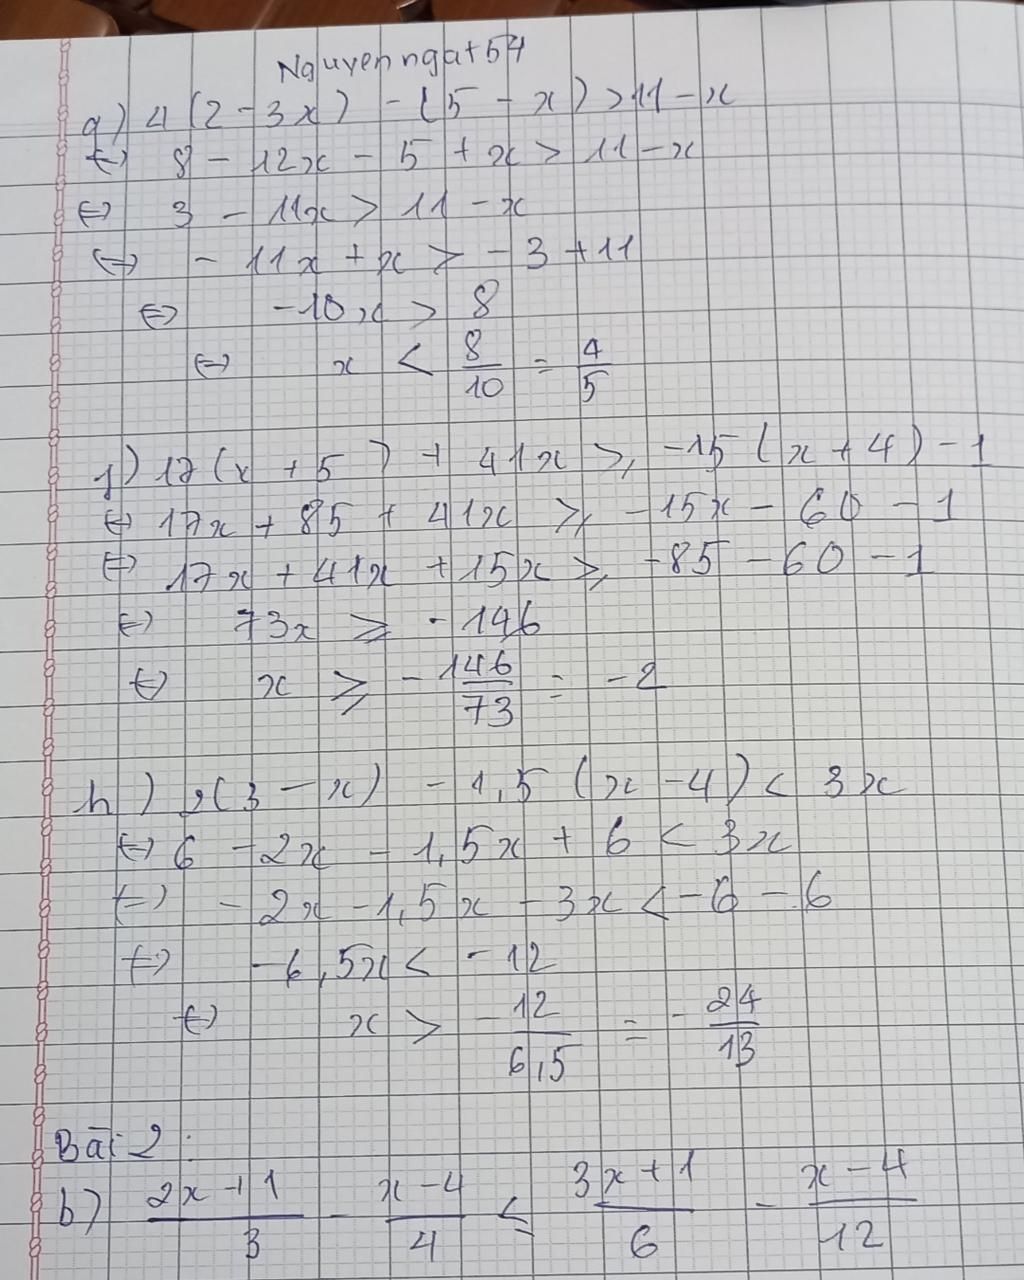 Nguyenngat54
g) 4(2 - 3x) - (5 - x) > 11 - x
⇔ 8 - 12x - 5 + x > 11 - x
⇔ 3 - 11x > 11 - x
⇔ - 11x + x > - 3 + 11
⇔ -10x > 8
⇔ x < 8/10 = 4/5
j) 17(x + 5) + 41x ≥ -15(x + 4) - 1
⇔ 17x + 85 + 41x ≥ -15x - 60 - 1
⇔ 17x + 41x + 15x ≥ -85 - 60 - 1
⇔ 73x ≥ - 146
⇔ x ≥ - 146/73 = -2
h) 2(3 - x) - 1,5(x - 4) < 3x
⇔ 6 - 2x - 1,5x + 6 < 3x
⇔ - 2x - 1,5x - 3x < - 6 - 6
⇔ -6,5x < - 12
⇔ x > - 12/6,5 = - 24/13
Bài 2:
b) (2x + 1)/3 - (x - 4)/4 ≤ (3x + 1)/6 - (x - 4)/12